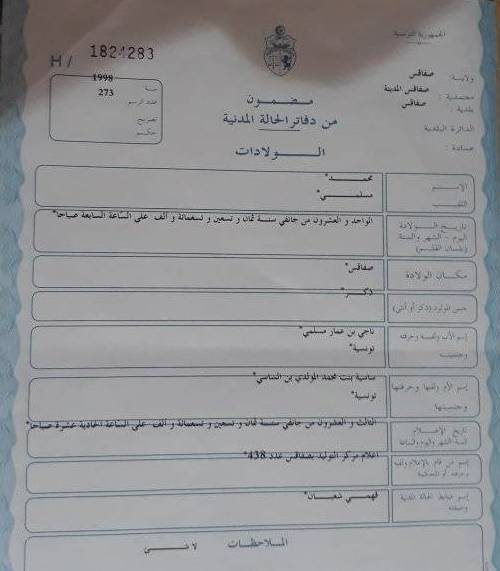 الجمهورية التونسية
ولاية : صفاقس
معتمدية : صفاقس المدينة
بلدية : صفاقس
الدائرة البلدية
عمادة :
H/ 1824283
سنة 1998
عدد الرسم 273
تصريح
حكم
مضمون
من دفاتر الحالة المدنية
الولادات
الإسم محمد*
اللقب مسلمي*
تاريخ الولادة
اليوم - الشهر والسنة
(بلسان القلم)
الواحد و العشرون من جانفي سنة ثمان و تسعين و تسعمائة و ألف على الساعة السابعة صباحا*
مكان الولادة صفاقس*
جنس المولود (ذكر أو أنثى) ذكر*
إسم الأب ولقبه وحرفته ناجي بن عمار مسلمي*
وجنسيته تونسية*
إسم الأم ولقبها وحرفتها سامية بنت محمد المولدي بن الساسي*
وجنسيتها تونسية*
تاريخ الإعلام
السنة الشهر واليوم والساعة
الثالث و العشرون من جانفي سنة ثمان و تسعين و تسعمائة و ألف على الساعة الحادية عشرة صباحا*
إسم من قام بالإعلام ولقبه
وحرفته أو المحكمة
اعلام مركز التوليد بصفاقس عدد 438*
إسم ضابط الحالة المدنية
وصفته
فهمي شعبان*
الملاحظات لا شئ